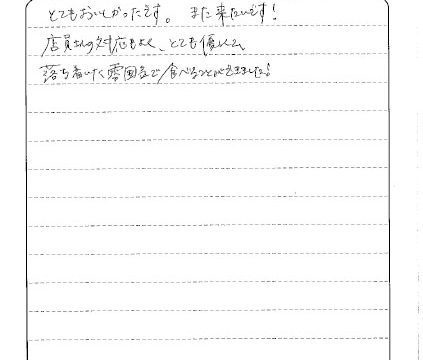 とてもおいしかったです。 また来たいです!
店員さんの対応もよく、とても優しく
落ち着いた雰囲気で食べることができました!